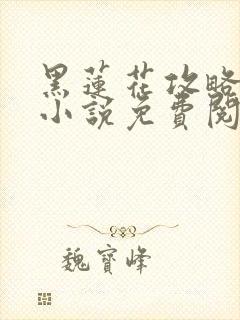 黑蓮花攻略
小說免費閱
魏寶峰